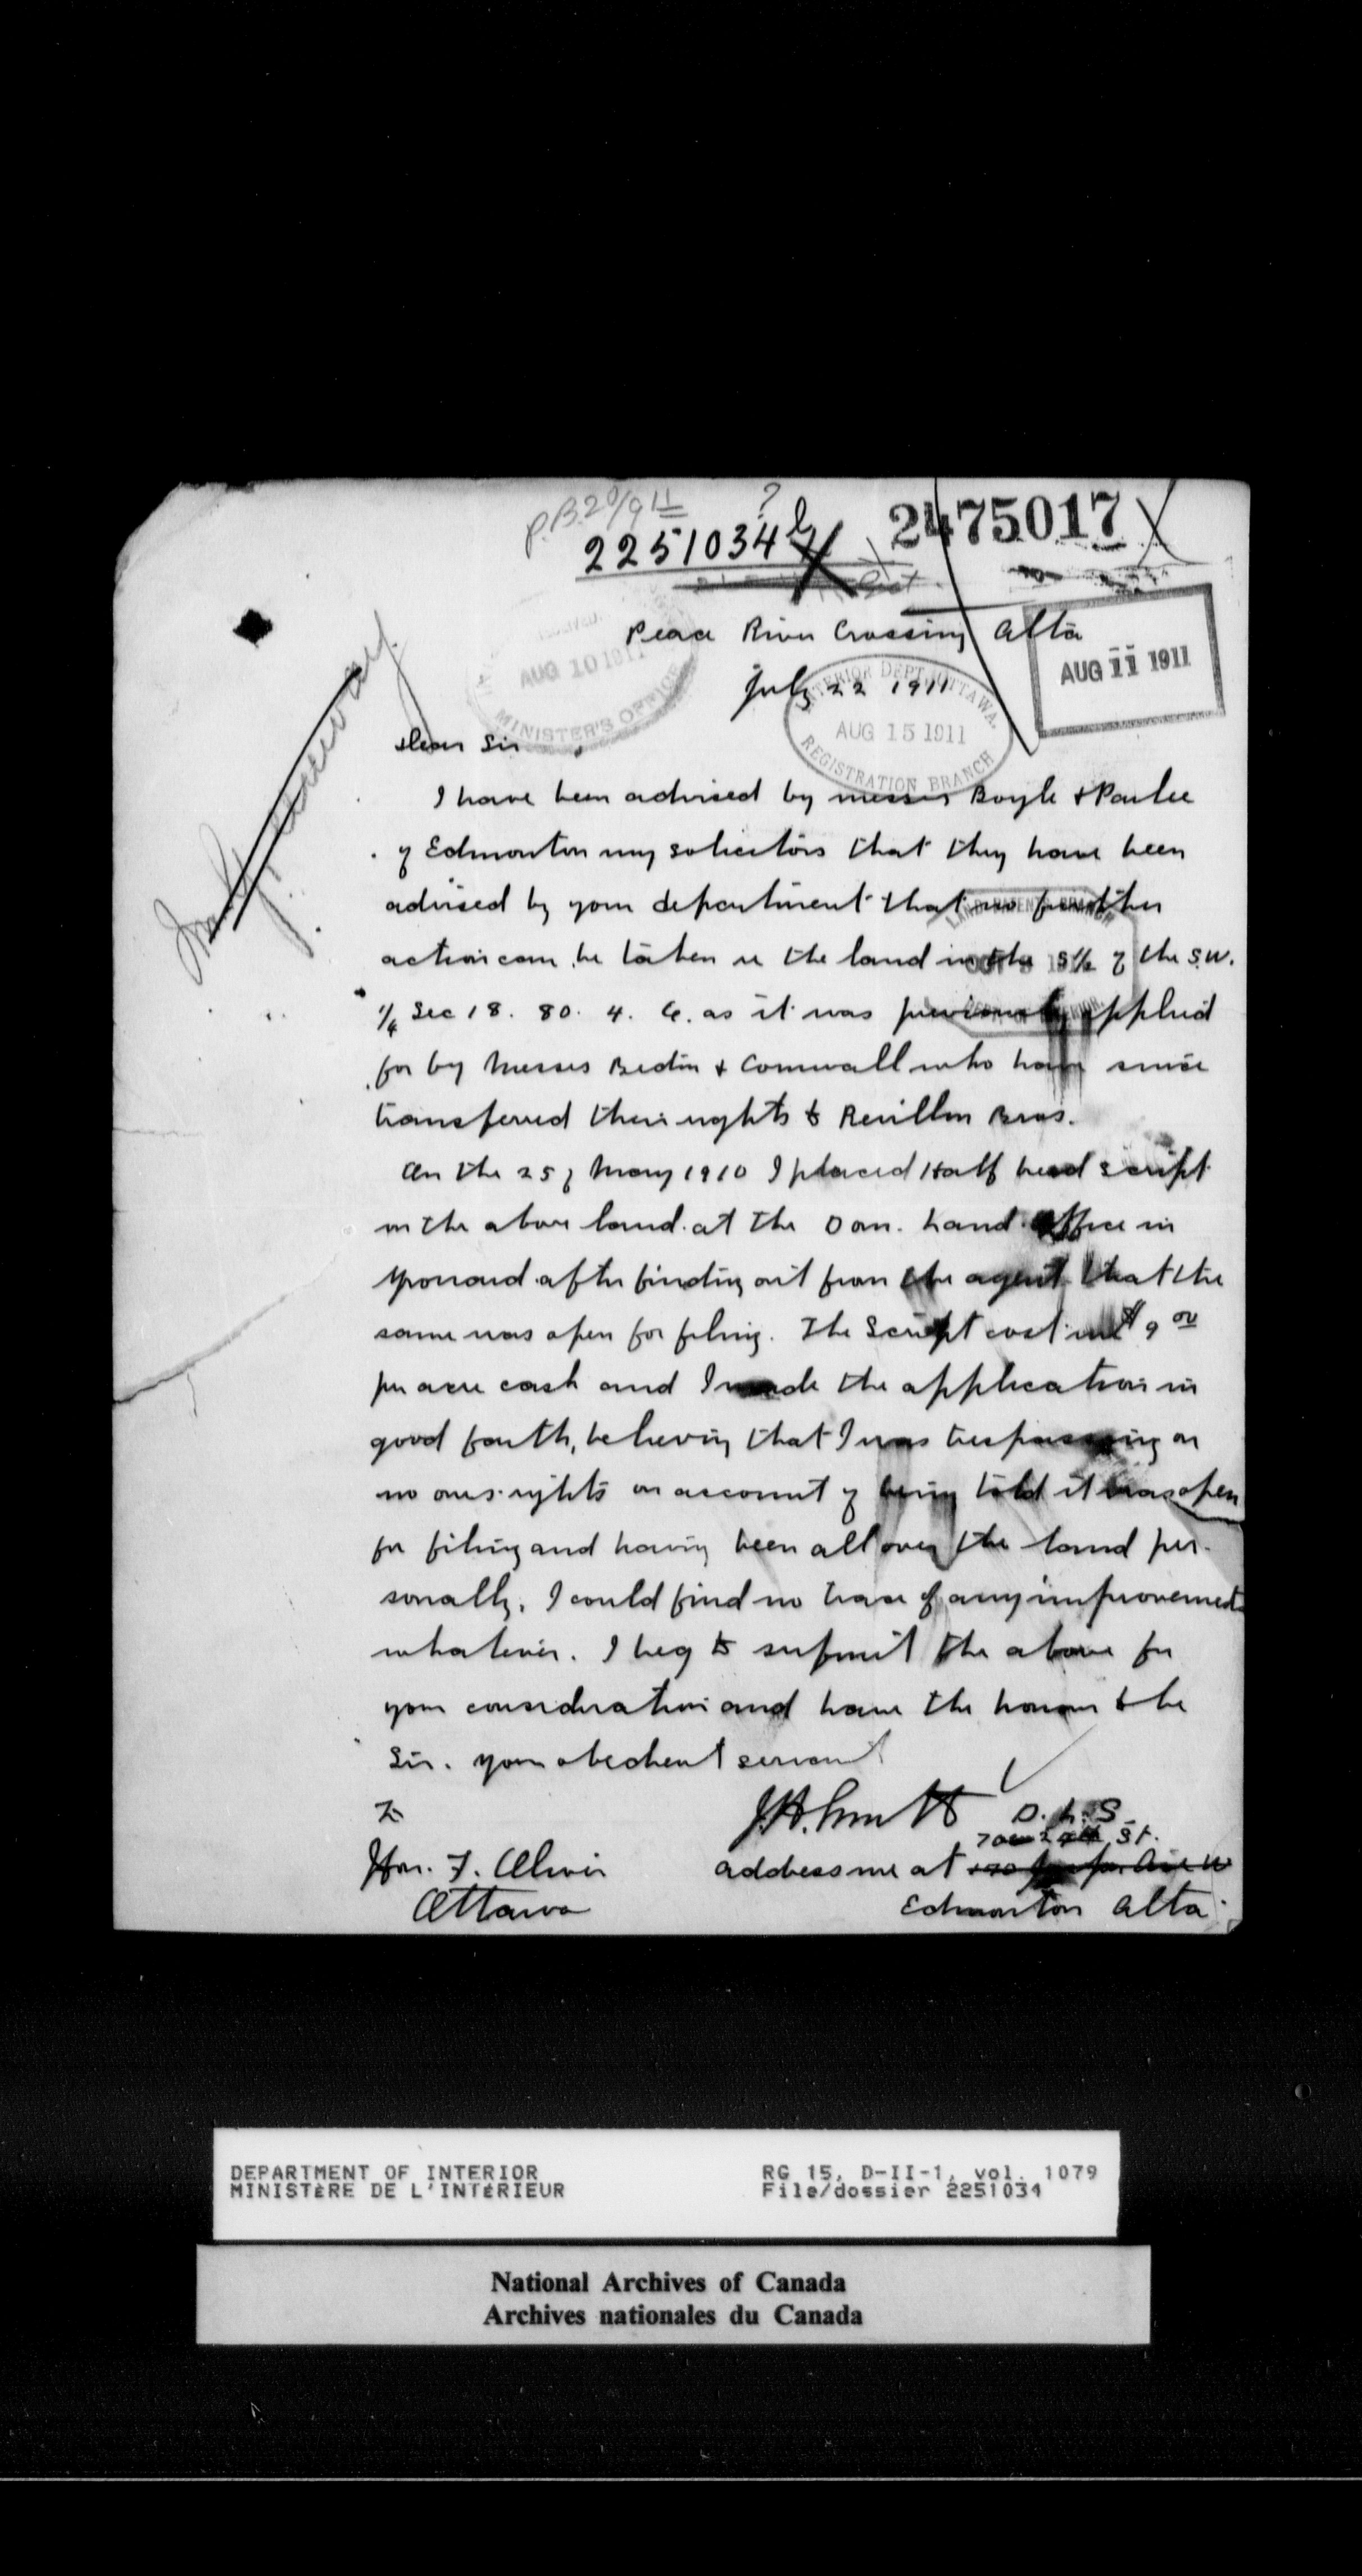 P.B. 20/9 11
?
2251034
2475017
Peace River Crossing Alta
AUG 10 1911
MINISTER'S OFFICE
AUG 11 1911
July 22 1911
INTERIOR DEPT. OTTAWA.
AUG 15 1911
REGISTRATION BRANCH
Dear Sir
I have been advised by messrs Boyle & Parlee
of Edmonton my solicitors that they have been
advised by your department that no further
action can be taken re the land in the S½ of the S.W.
¼ Sec 18. 80. 4. 6. as it was previously applied
for by Messrs Bedin & Cornwall who have since
transferred their rights to Revillon Bros.
On the 25 of May 1910 I placed Half breed script
on the above land at the Dom. Land Office in
after finding out from the agent that the
same was open for filing. The Script cost me $9 00
per acre cash and I made the application in
good faith, believing that I was trespassing on
no ones rights on account of being told it was open
for filing and having been all over the land per-
sonally, I could find no trace of any improvements
whatever. I beg to submit the above for
your consideration and have the honour to be
Sir. your obedient servant
To
J.H. Smith D.L.S.
St.
Hon. F. Oliver
address me at
Ottawa
Edmonton Alta
DEPARTMENT OF INTERIOR
MINISTÈRE DE L'INTÉRIEUR
RG 15, D-II-1, vol. 1079
File/dossier 2251034
National Archives of Canada
Archives nationales du Canada